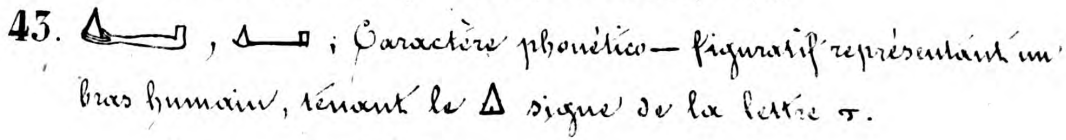 43. 𓂞, 𓂞 ; Caractère phonético-figuratif représentant un
bras humain, tenant le Δ signe de la lettre τ.